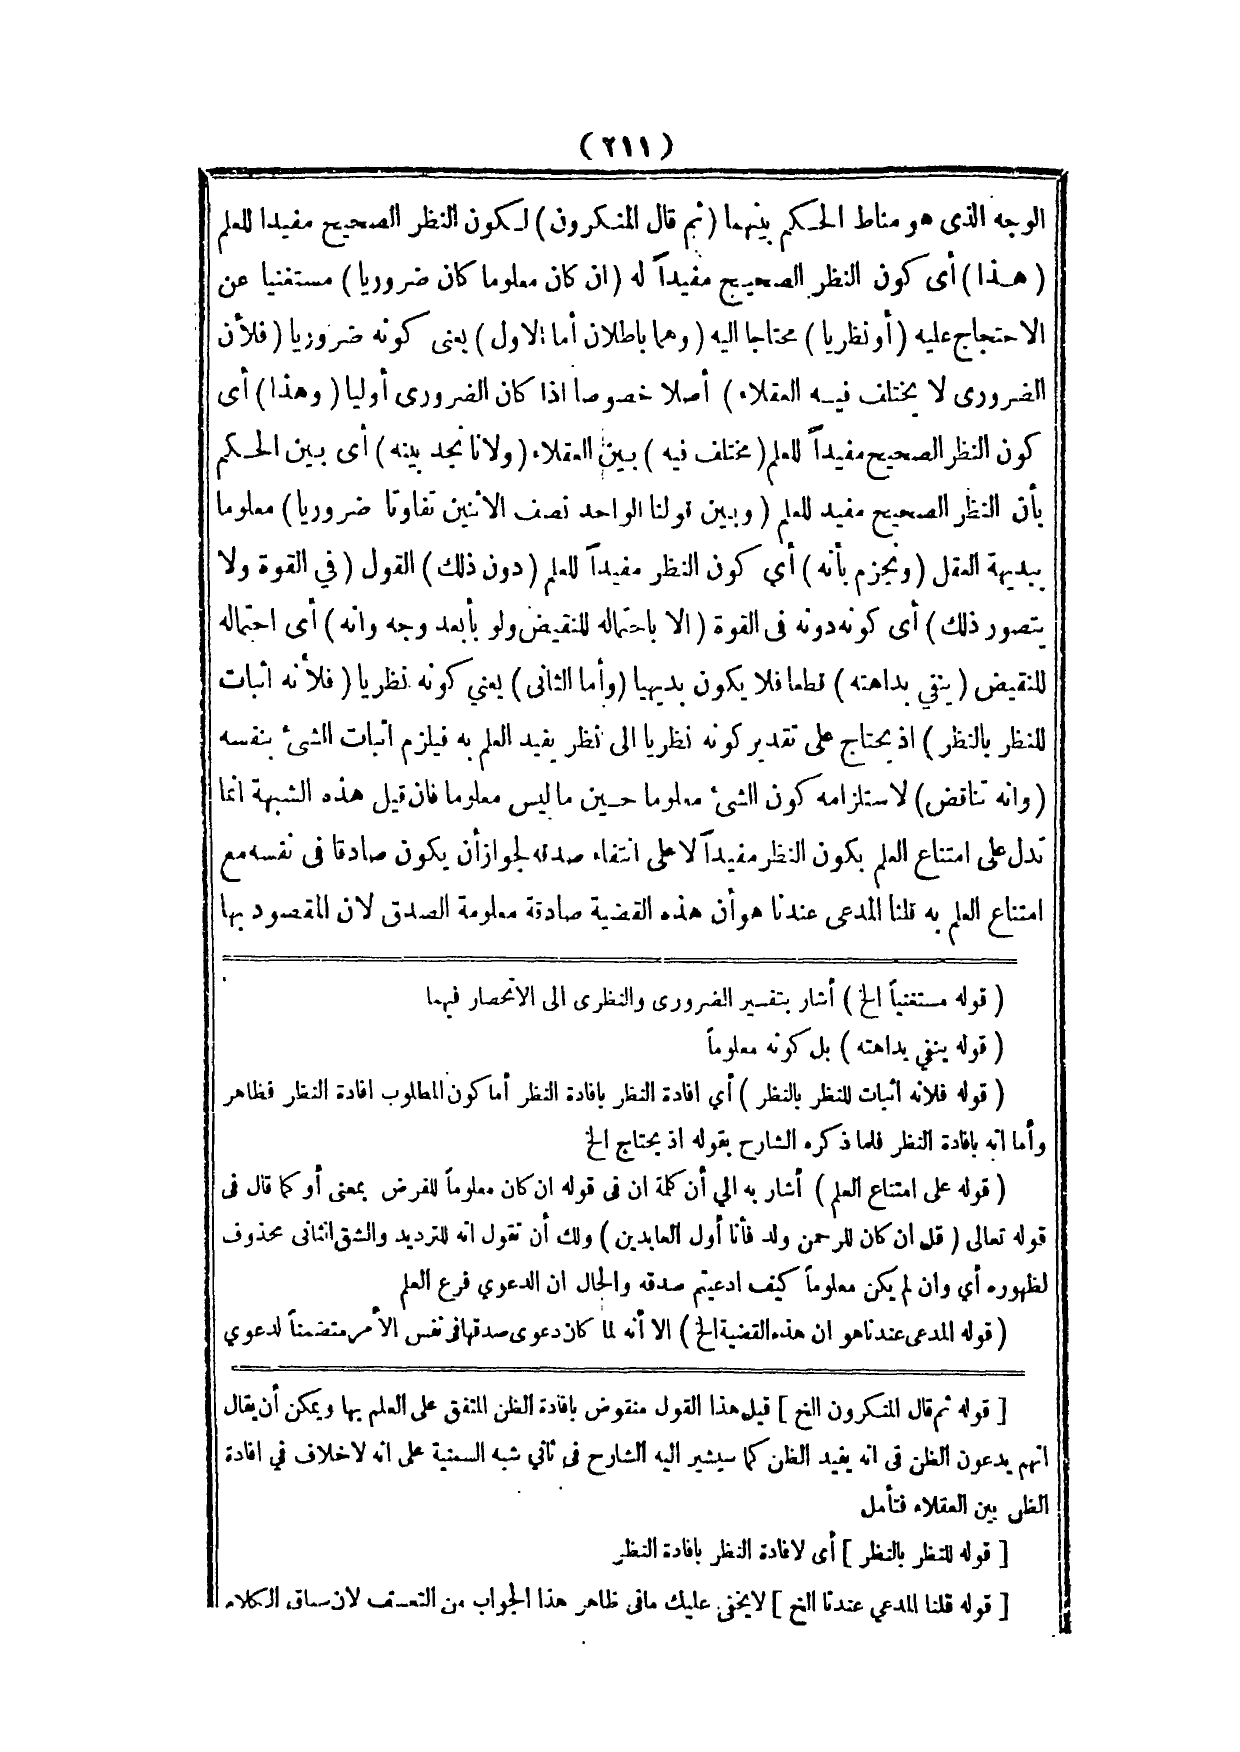 (٢١١)
الوجه الذى هو مناط الحكم بينهما (ثم قال المنكرون) لكون النظر الصحيح مفيدا للعلم
(هذا) أى كون النظر الصحيح مفيداً له (ان كان معلوما كان ضروريا) مستغنيا عن
الاحتجاج عليه (أو نظريا) محتاجا اليه (وهما باطلان أما الاول) يعنى كونه ضروريا (فلأن
الضرورى لا يختلف فيه العقلاء) أصلا خصوصا اذا كان الضرورى أوليا (وهذا) أى
كون النظر الصحيح مفيداً للعلم (مختلف فيه) بين العقلاء (ولانا نجد بينه) أى بين الحكم
بأن النظر الصحيح مفيد للعلم (وبين قولنا الواحد نصف الاثنين تفاوتا ضروريا) معلوما
ببديهة العقل (ونجزم بأنه) أي كون النظر مفيداً للعلم (دون ذلك) القول (في القوة ولا
يتصور ذلك) أى كونه دونه فى القوة (الا باحتماله للنقيض ولو بأبعد وجه وانه) أى احتماله
للنقيض (ينفي بداهته) قطعا فلا يكون بديهيا (وأما الثانى) يعني كونه نظريا (فلأنه اثبات
للنظر بالنظر) اذ يحتاج على تقدير كونه نظريا الى نظر يفيد العلم به فيلزم اثبات الشئ بنفسه
(وانه تناقض) لاستلزامه كون الشئ معلوما حين ما ليس معلوما فان قيل هذه الشبهة انما
تدل على امتناع العلم بكون النظر مفيداً لا على انتفاء صدقه لجواز أن يكون صادقا فى نفسه مع
امتناع العلم به قلنا المدعى عندنا هو أن هذه القضية صادقة معلومة الصدق لان المقصود بها
(قوله مستغنياً الخ) أشار بتفسير الضرورى والنظرى الى الانحصار فيهما
(قوله ينفي بداهته) بل كونه معلوماً
(قوله فلانه اثبات للنظر بالنظر) أي افادة النظر بافادة النظر أما كون المطلوب افادة النظر فظاهر
وأما انه بافادة النظر فلما ذكره الشارح بقوله اذ يحتاج الخ
(قوله على امتناع العلم) أشار به الي أن كلمة ان فى قوله ان كان معلوماً للفرض بمعنى أو كما قال فى
قوله تعالى (قل ان كان للرحمن ولد فأنا أول العابدين) ولك أن تقول انه للترديد والشق الثانى محذوف
لظهوره أي وان لم يكن معلوماً كيف ادعيتم صدقه والحال ان الدعوي فرع العلم
(قوله المدعى عندنا هو ان هذه القضية الخ) الا أنه لما كان دعوى صدقها فى نفس الأمر متضمناً لدعوي
[قوله ثم قال المنكرون الخ] قيل هذا القول منقوض بافادة الظن المتفق على العلم بها ويمكن أن يقال
انهم يدعون الظن فى انه يفيد الظن كما سيشير اليه الشارح فى ثاني شبه السمنية على انه لا خلاف في افادة
الظن بين العقلاء فتأمل
[قوله للنظر بالنظر] أى لافادة النظر بافادة النظر
[قوله قلنا المدعي عندنا الخ] لا يخفى عليك مافى ظاهر هذا الجواب من التعسف لان سياق الكلام